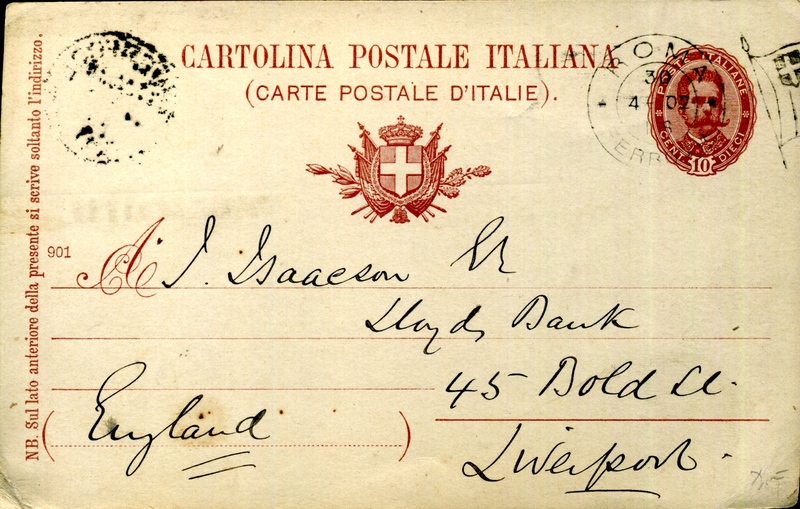 CARTOLINA POSTALE ITALIANA
(CARTE POSTALE D'ITALIE).
ROMA
30
4 02
FERR
POSTE ITALIANE
CENT. 10 DIECI
901
A J. Isaacson Er
Lloyds Bank
45 Bold St.
Liverpool.
(England)
NB. Sul lato anteriore della presente si scrive soltanto l'indirizzo.